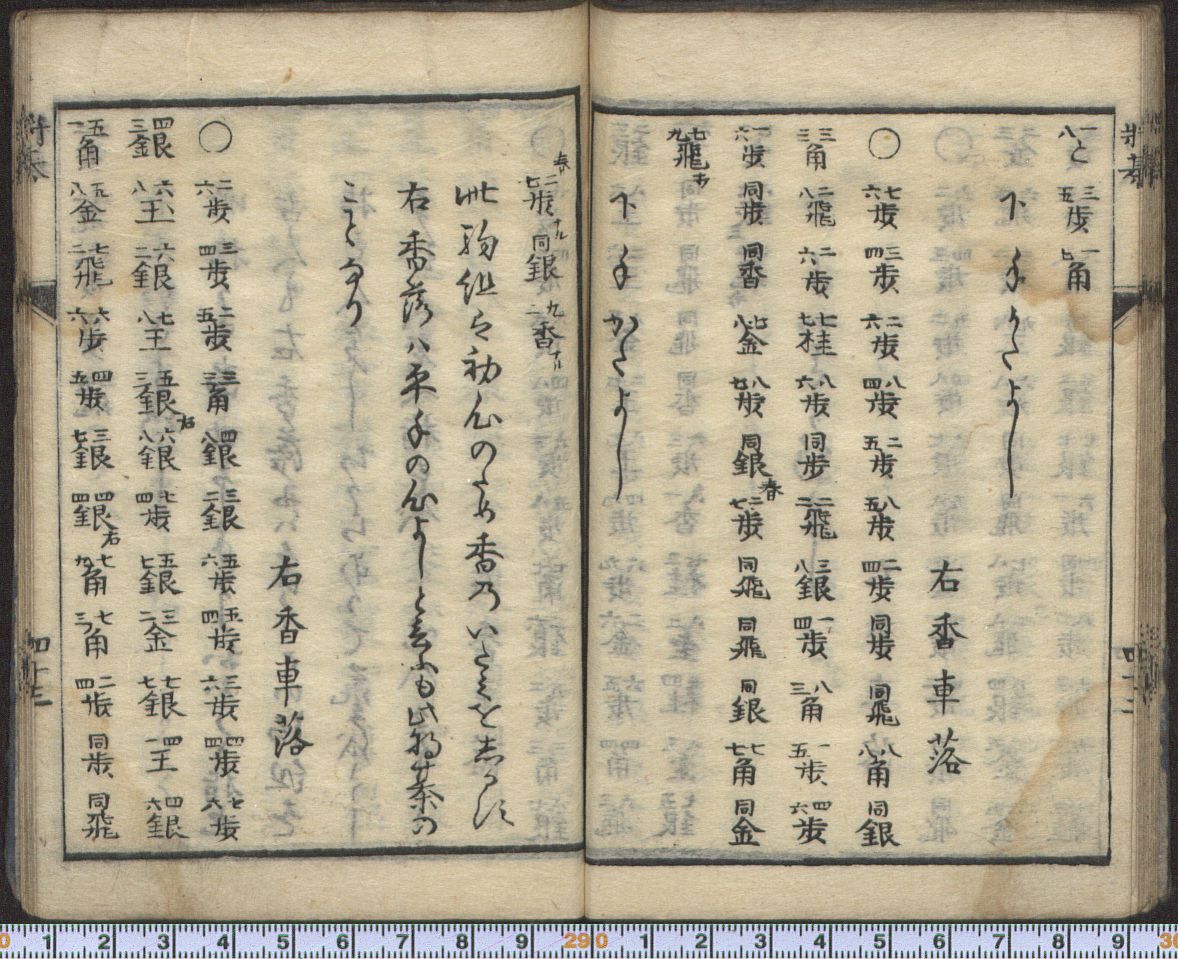 一八と 三五歩 一七角
下手かたよし
右香車落
○ 七六歩 三四歩 二六歩 八四歩 二五歩 八五歩 二四歩 同歩 同飛 八八角 同銀
三三角 二八飛 二六歩 七七桂 八六歩 同歩 二二飛 三八銀 一四歩 八三角 一五歩 四六歩
一六歩 同歩 同香 七八金 八七歩 同銀 二七歩 同飛 同飛 同銀 七七角 同金
七九飛
下手かたよし
四十二
二七歩 同銀 九二香
此駒組ハ初心のため香乃いたミを
右香落ハ平手の心よしと云ふも此将棊の
ことなり
右香車落
○ 二六歩 三四歩 二五歩 三三角 四八銀 三二銀 五六歩 五四歩 三六歩 四四歩 七六歩
四三銀 六八王 六二銀 七八王 五三銀右 六八銀 七四歩 五七銀 三二金 七七銀 四一王 四六銀
五一角 五八金 七二飛 六六歩 四五歩 三七銀 四四銀右 七九角 七三角 二四歩 同歩 同飛
四十三